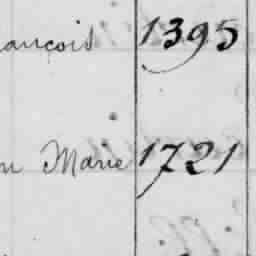 ançois 1395
n Marie 1721